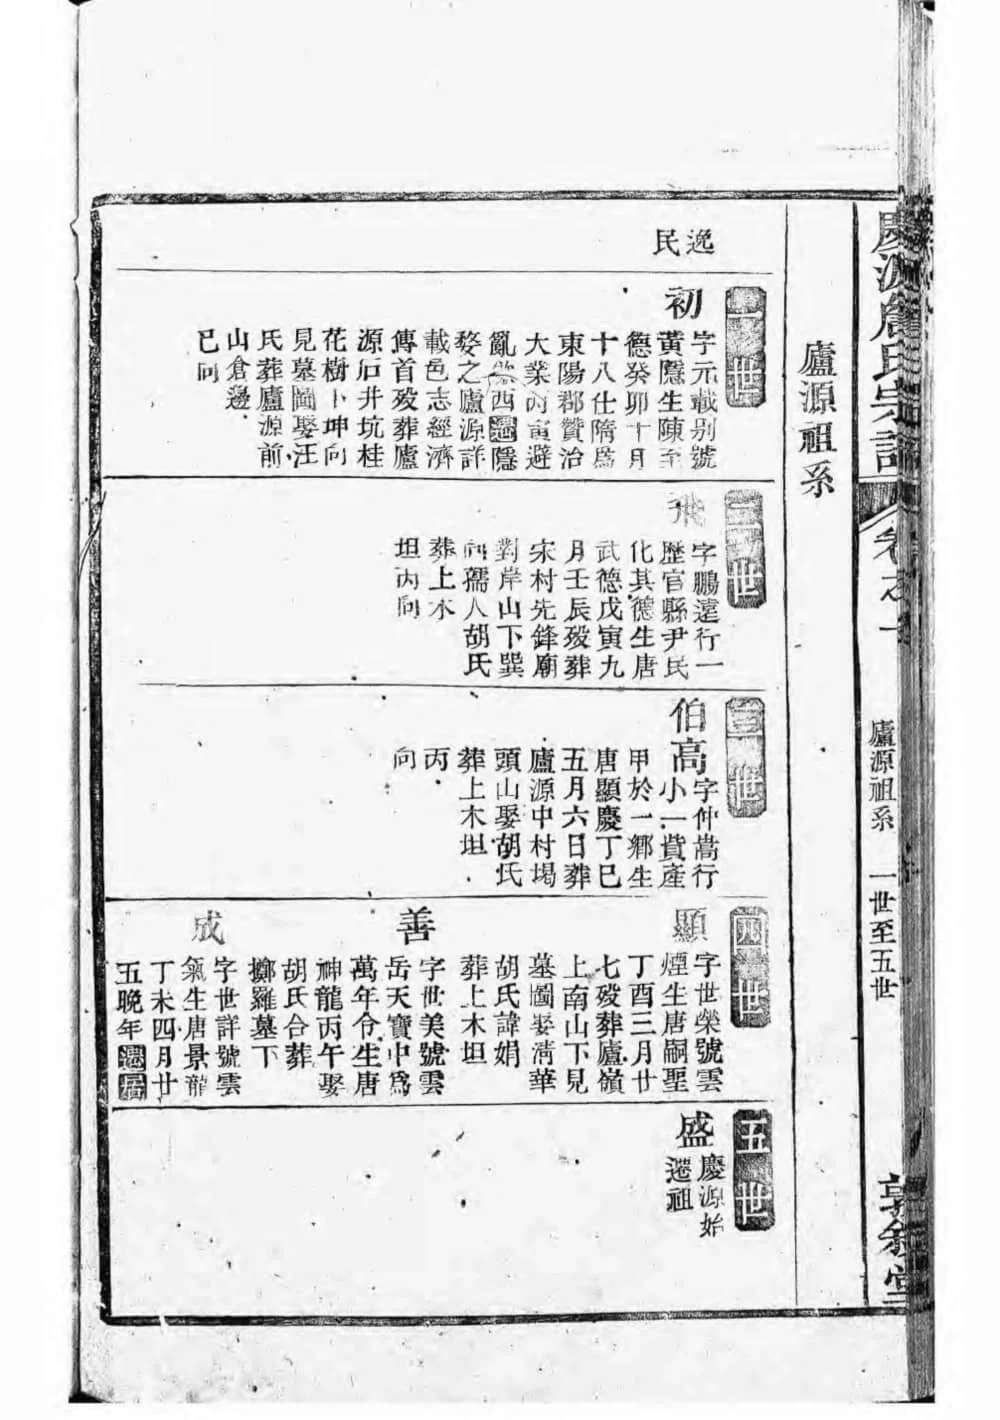 慶源詹氏宗譜
卷之一
廬源祖系
一世至五世
敦敘堂
廬源祖系
逸民
一世
初
字元載别號
黃隱生陳至
德癸卯十月
十八仕隋爲
東陽郡贊治
大業丙寅避
亂 西遷隱
婺之廬源詳
載邑志經濟
傳首歿葬廬
源石井坑桂
花樹卜坤向
見墓圖娶汪
氏葬廬源前
山倉邊
巳向
二世
飛
字鵬遠行一
歷官縣尹民
化其德生唐
武德戊寅九
月壬辰歿葬
宋村先鋒廟
對岸山下巽
向孺人胡氏
葬上木
坦丙向
三世
伯高
字仲嵩行
小一貲產
甲於一鄉生
唐顯慶丁巳
五月六日葬
廬源中村塲
頭山娶胡氏
葬上木坦
丙
向
四世
顯
字世榮號雲
煙生唐嗣聖
丁酉三月廿
七歿葬廬嶺
上南山下見
墓圖娶淸華
胡氏諱娟
葬上木坦
善
字世美號雲
岳天寶中爲
萬年令生唐
神龍丙午娶
胡氏合葬
擲羅墓下
成
字世詳號雲
氣生唐景龍
丁未四月廿
五晚年遷居
五世
盛
慶源始
遷祖